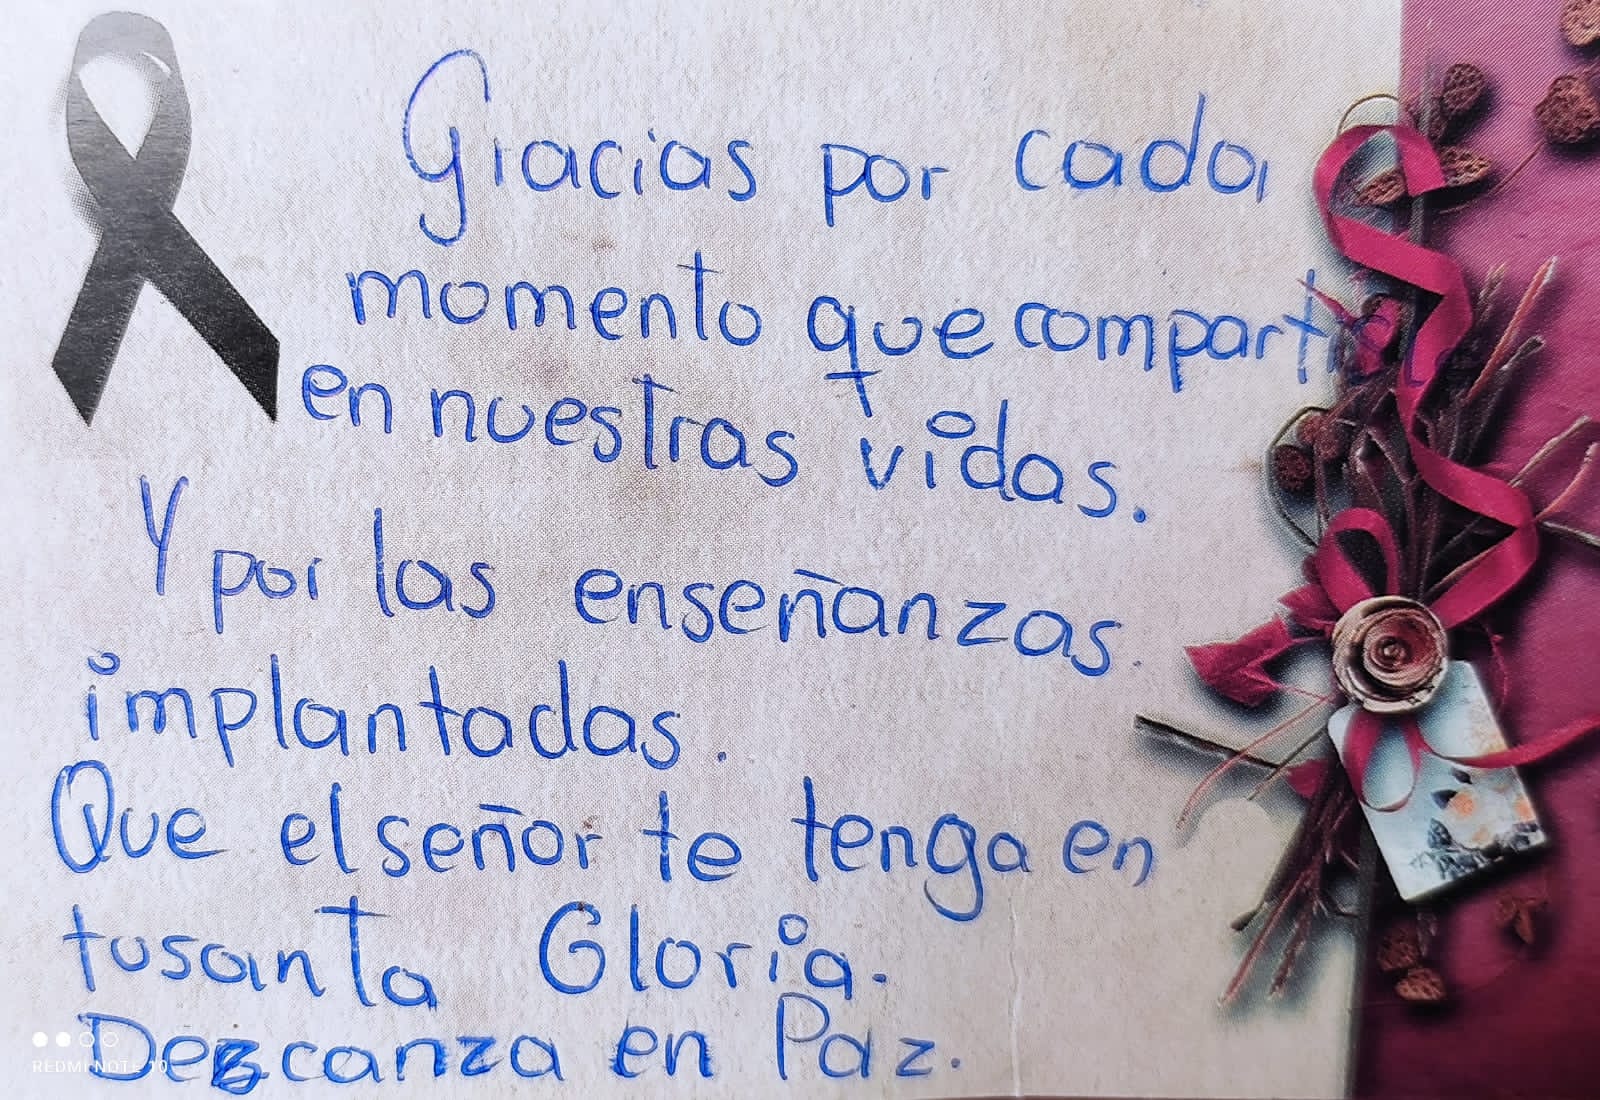 Gracias por cada
momento que compartiste
en nuestras vidas.
Y por las enseñanzas.
implantadas.
Que el señor te tenga en
tusanta Gloria.
Dezcanza en Paz.
REDMI NOTE 10